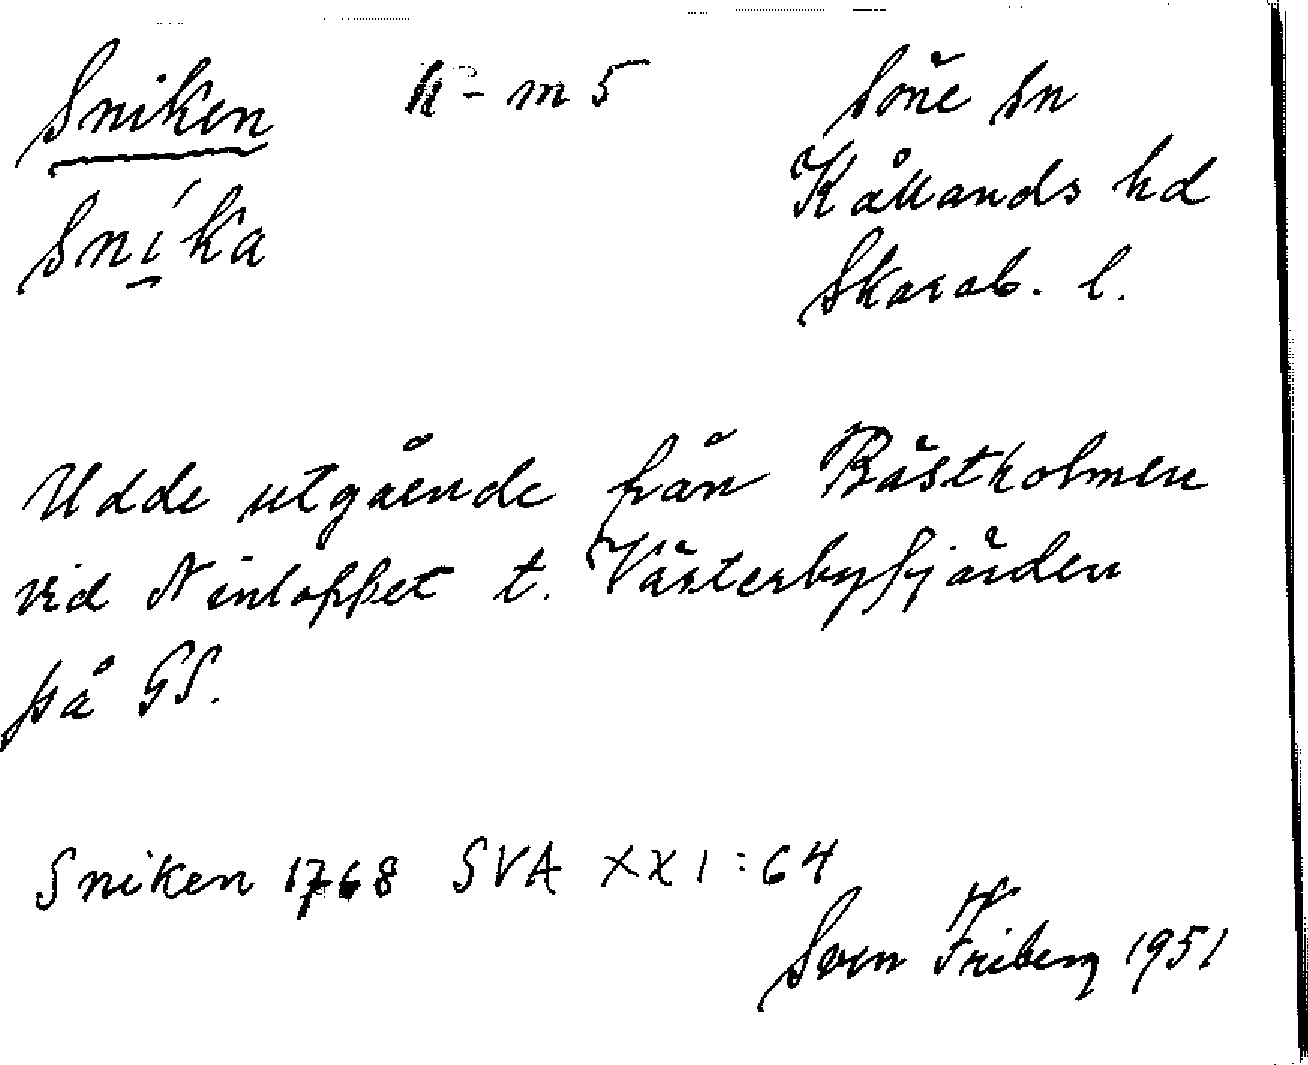 Sniken k-m 5 Söne sn
Kållands hd
Snika Skarab. l.
Udde utgående från Båstholmen
vid N inloppet t. Västerbyfjärden
på GS.
Sniken 1768 SVA XXI:64
Sven Friberg 1951